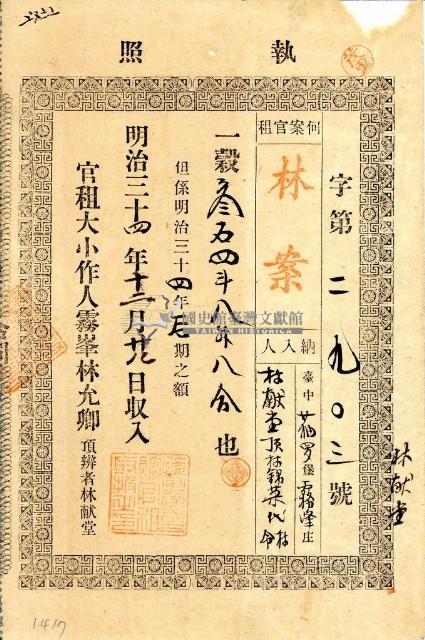 執照
字第二九〇三號
何案官租
林案
納入人
臺中
堡霧峰庄
林献堂頂林錦荣代
林献堂
一穀叁石四斗八升八合也
但係明治三十四年
期之額
明治三十四年十二月
日収入
官租大小作人霧峯林允卿
頂辨者林献堂
國史館臺灣文獻館
TAIWAN HISTORICA
1417